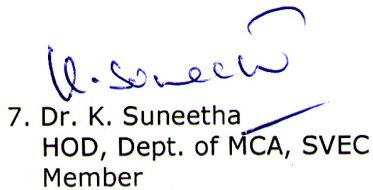 K. Suneetha
7. Dr. K. Suneetha
HOD, Dept. of MCA, SVEC
Member